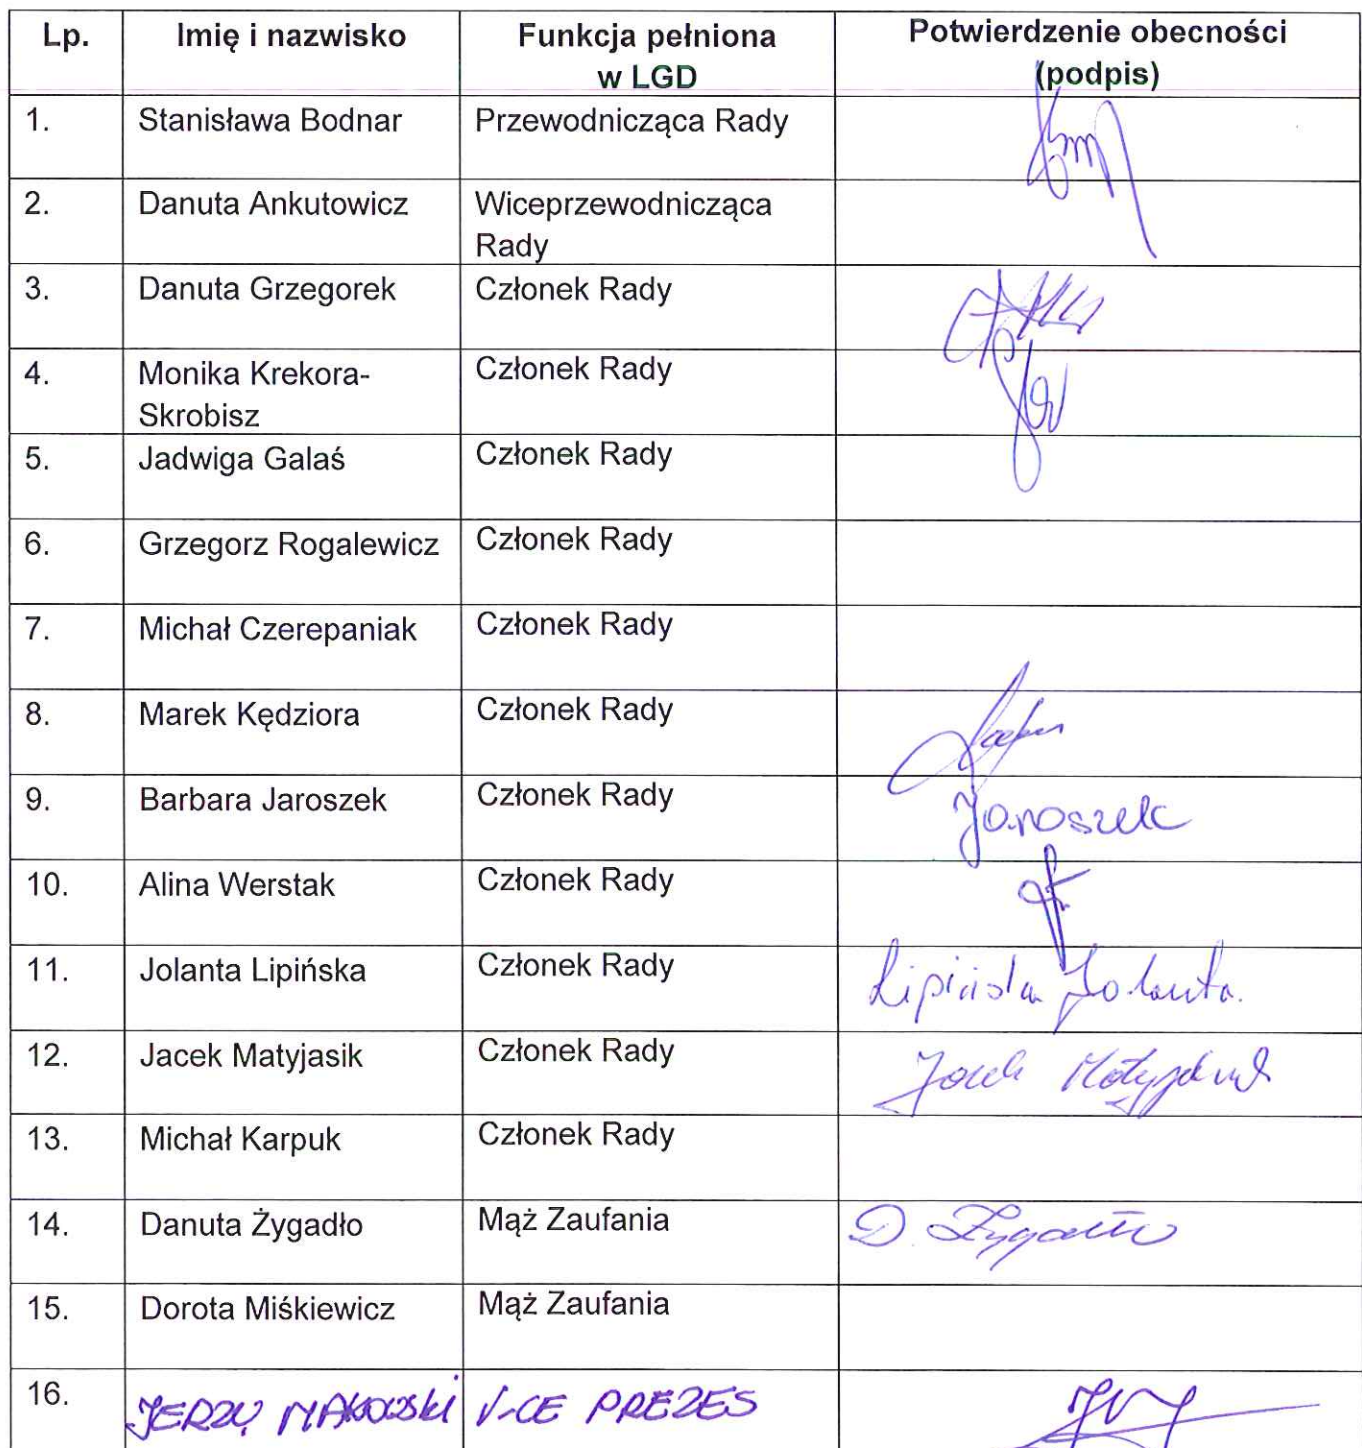 Lp.
Imię i nazwisko
Funkcja pełniona
w LGD
Potwierdzenie obecności
(podpis)
1.
Stanisława Bodnar
Przewodnicząca Rady
2.
Danuta Ankutowicz
Wiceprzewodnicząca
Rady
3.
Danuta Grzegorek
Członek Rady
4.
Monika Krekora-
Skrobisz
Członek Rady
5.
Jadwiga Galaś
Członek Rady
6.
Grzegorz Rogalewicz
Członek Rady
7.
Michał Czerepaniak
Członek Rady
8.
Marek Kędziora
Członek Rady
9.
Barbara Jaroszek
Członek Rady
Jaroszek
10.
Alina Werstak
Członek Rady
11.
Jolanta Lipińska
Członek Rady
Lipińska Jolanta
12.
Jacek Matyjasik
Członek Rady
Jacek Matyjasik
13.
Michał Karpuk
Członek Rady
14.
Danuta Żygadło
Mąż Zaufania
D. Żygadło
15.
Dorota Miśkiewicz
Mąż Zaufania
16.
JERZY MAKOWSKI
V-CE PREZES